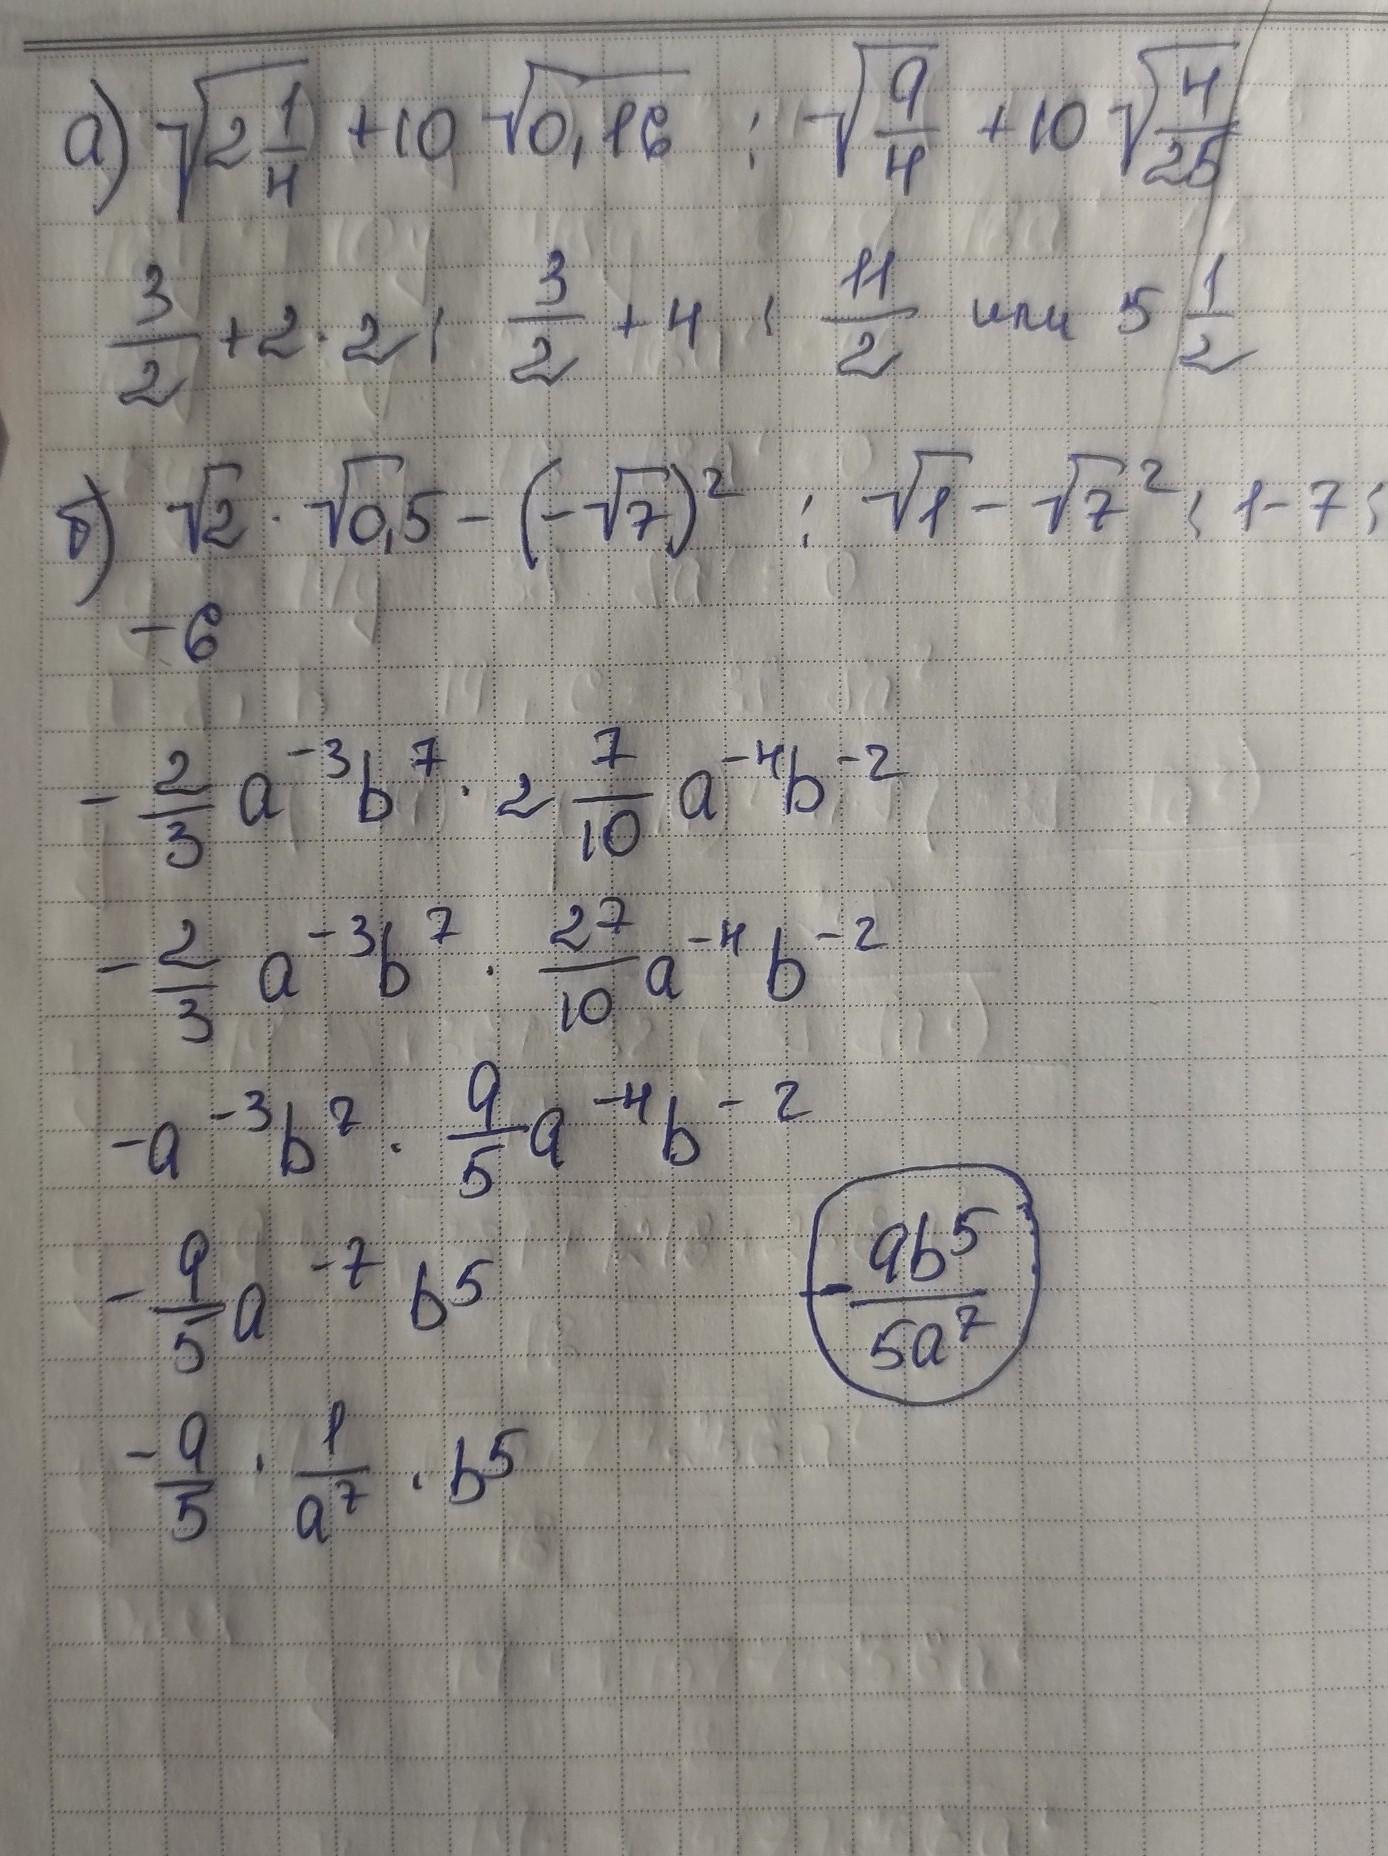 а) √(2 1/4) + 10 √(0,16) ; √(9/4) + 10 √(4/25)
3/2 + 2 · 2 ; 3/2 + 4 ; 11/2 или 5 1/2
б) √2 · √0,5 - (-√7)² ; √1 - √7² ; 1-7 ;
-6
- 2/3 a⁻³b⁷ · 2 7/10 a⁻⁴b⁻²
- 2/3 a⁻³b⁷ · 27/10 a⁻⁴b⁻²
-a⁻³b⁷ · 9/5 a⁻⁴b⁻²
- 9/5 a⁻⁷ b⁵
- 9b⁵/5a⁷
- 9/5 · 1/a⁷ · b⁵